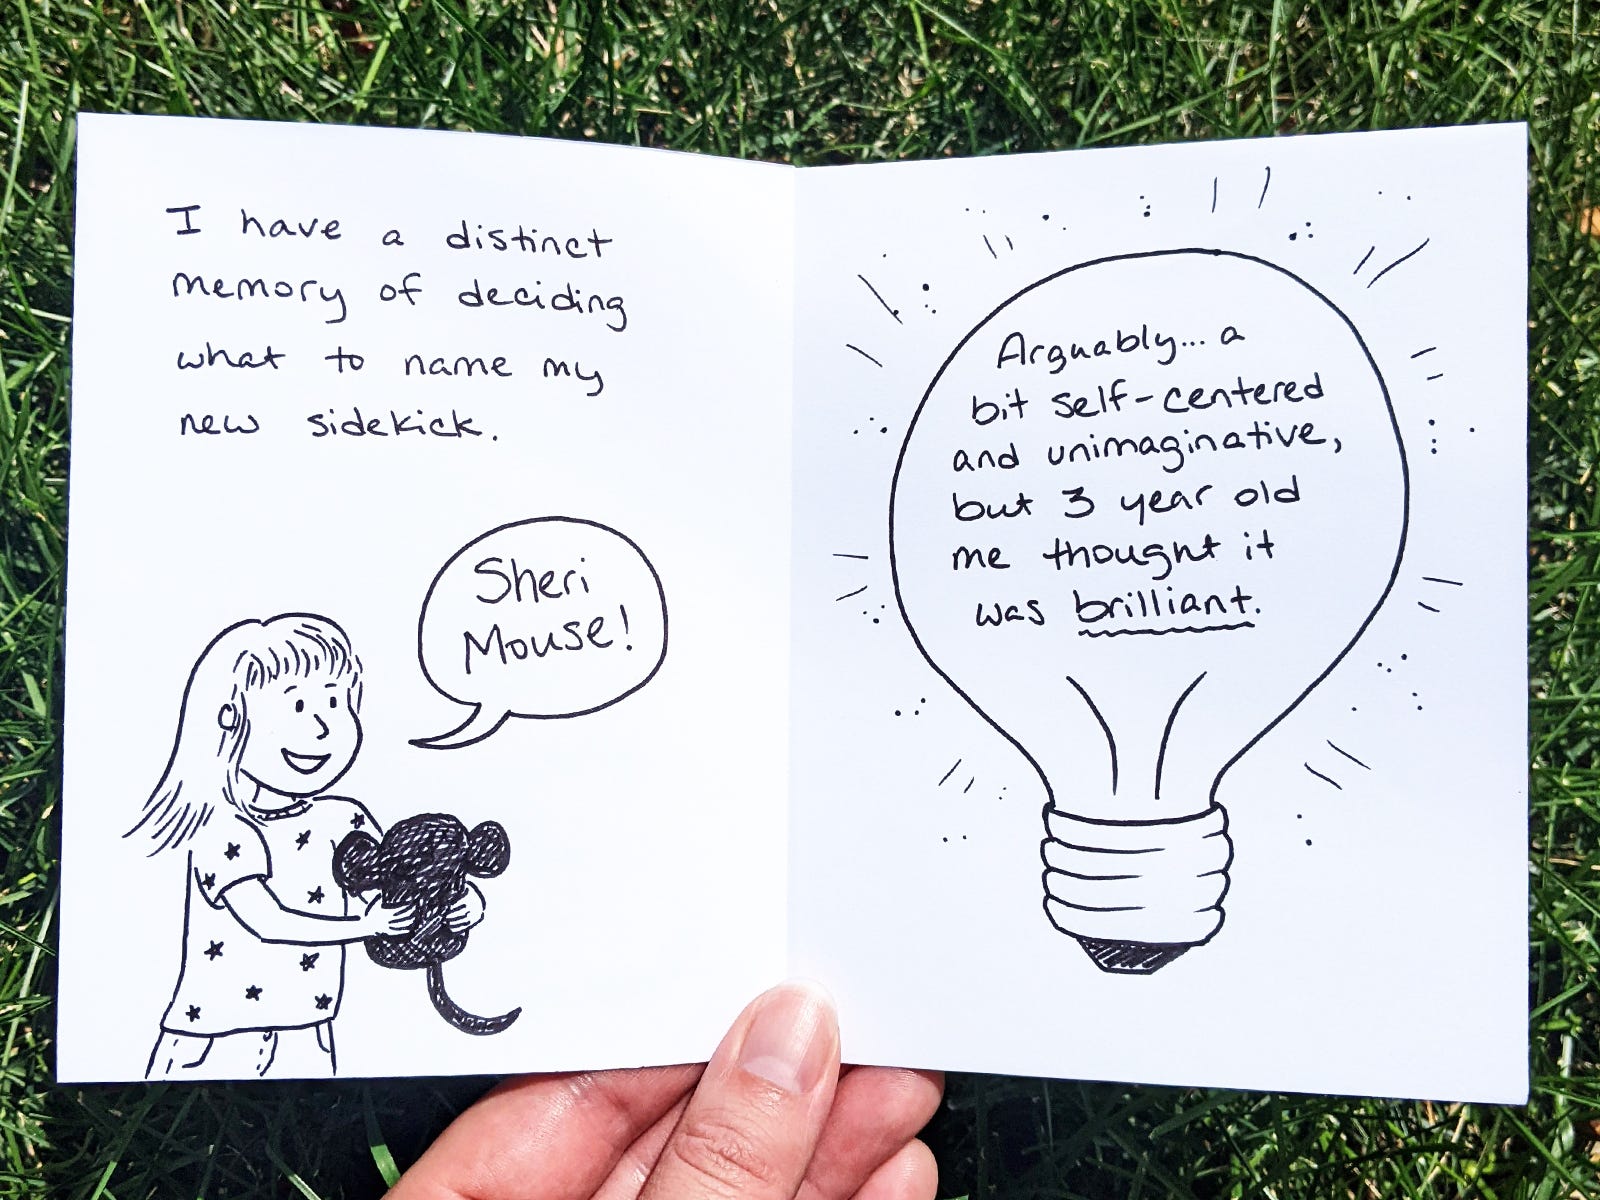 I have a distinct
memory of deciding
what to name my
new sidekick.
Sheri
Mouse!
Arguably... a
bit self-centered
and unimaginative,
but 3 year old
me thought it
was brilliant.